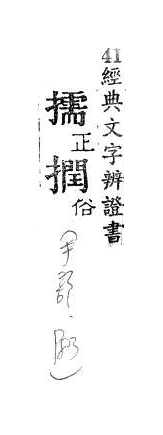 41
經典文字辨證書
擩正
撋俗